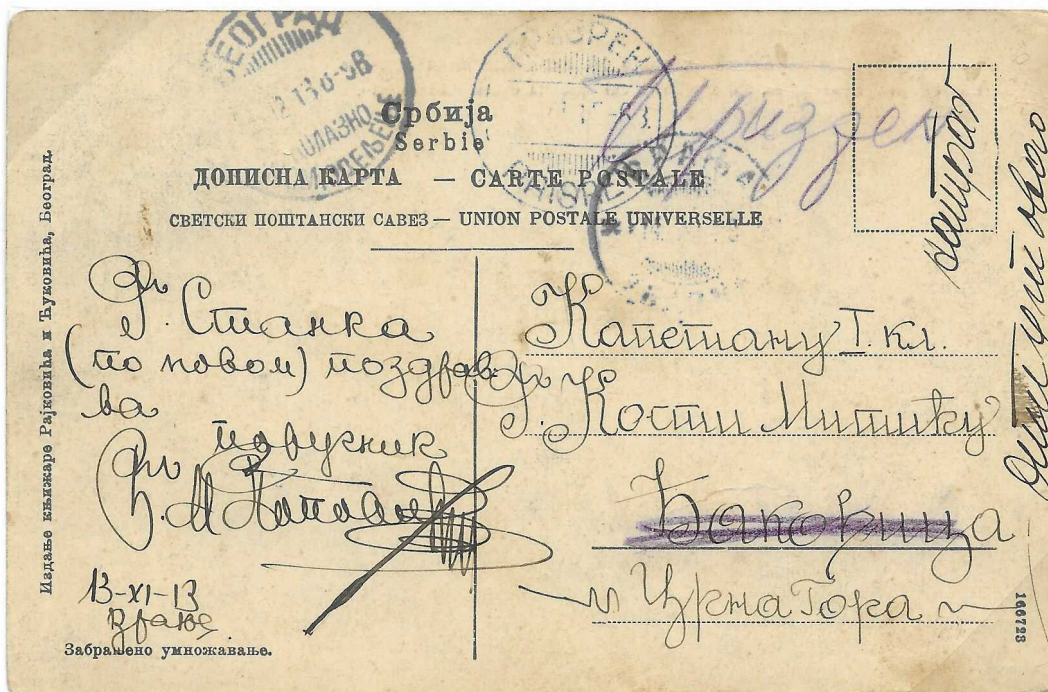 БЕОГРАД
ПРИЗРЕН
Србија
Serbie
Призрен
ДОПИСНА КАРТА — CARTE POSTALE
СВЕТСКИ ПОШТАНСКИ САВЕЗ — UNION POSTALE UNIVERSELLE
Издање књижаре Рајковића и Ђуковића, Београд.
Г. Станка
(по новом) поздрав
ва
поручник
13-XI-13
Врање
Забрањено умножавање.
Капетану I. кл.
Г. Кости Митићу
Ђаковица
Црна Гора
166723